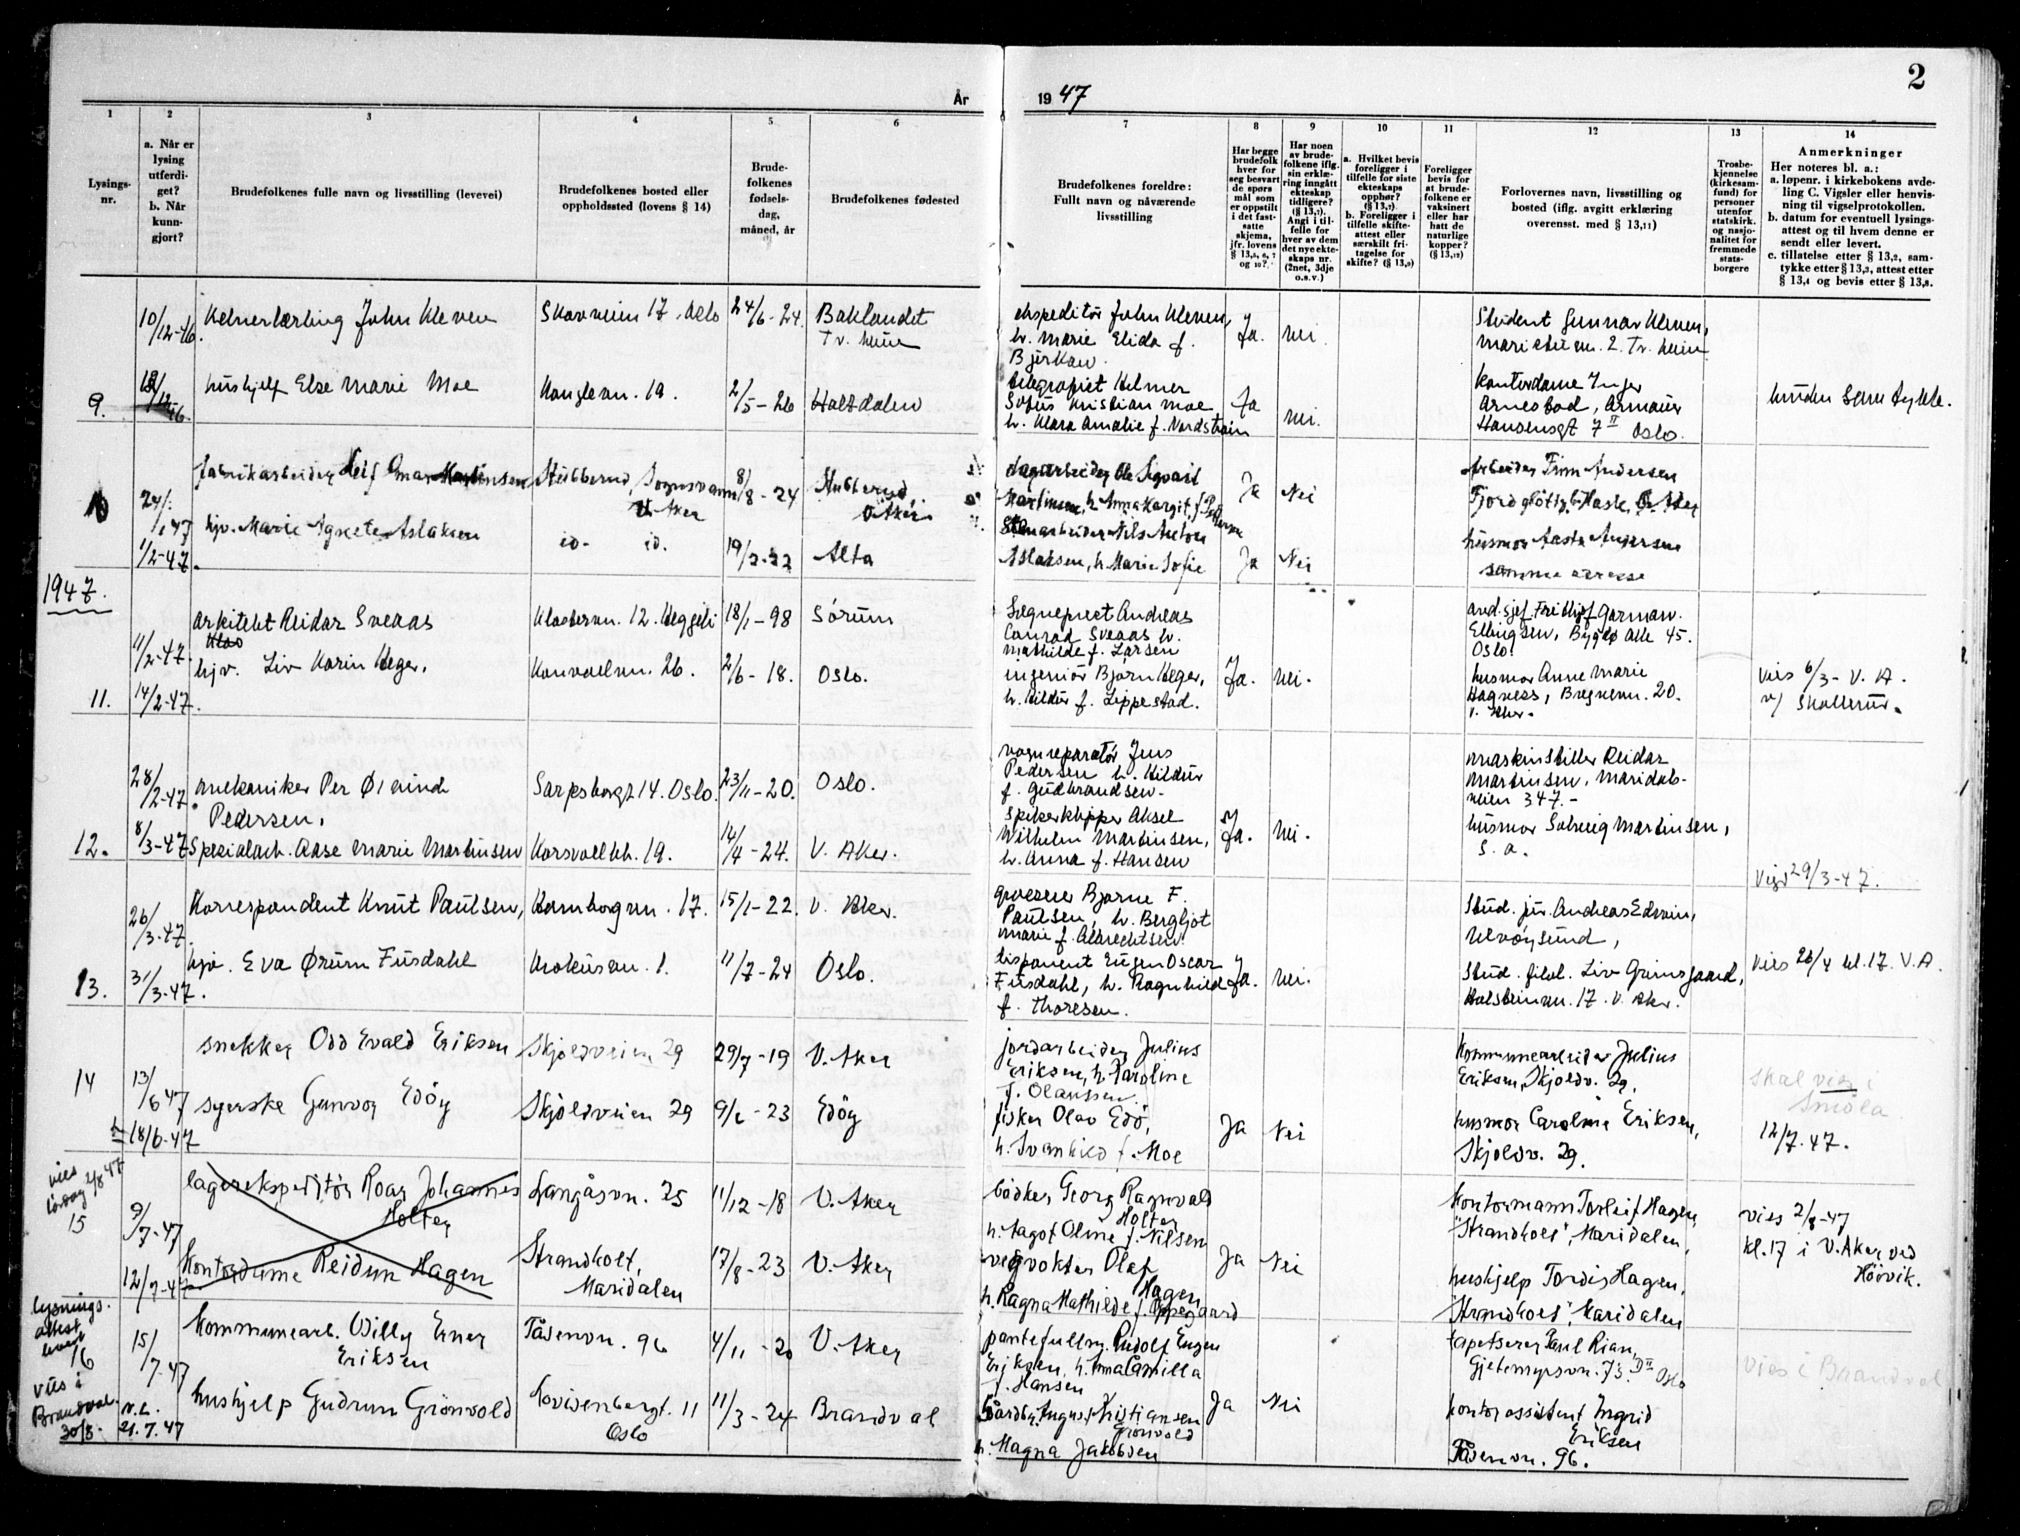 2
År
19 47
1
2
3
4
5
6
7
8
9
10
11
12
13
14
Lysings-
nr.
a. Når er
lysing
utferdi-
get?
b. Når
kunn-
gjort?
Brudefolkenes fulle navn og livsstilling (levevei)
Brudefolkenes bosted eller
oppholdssted (lovens § 14)
Brude-
folkenes
fødsels-
dag,
måned, år
Brudefolkenes fødested
Brudefolkenes foreldre:
Fullt navn og nåværende
livsstilling
Har begge
brudefolk
hver for
seg besvart
de spørs-
mål som
er oppstilt
i det fast-
satte
skjema,
jfr. lovens
§ 13,5, 6, 7
og 10?
Har noen
av brude-
folkene iflg.
sin erklæ-
ring inngått
ekteskap
tidligere?
(§ 13,7).
Angi i til-
felle for
hver av dem
det nye ekte-
skaps nr.
(2net, 3dje
o.s.v.)
a. Hvilket bevis
foreligger i
tilfelle for siste
ekteskaps
opphør?
(§ 13,7).
b. Foreligger i
tilfelle skifte-
attest eller
særskilt fri-
tagelse for
skifte? (§ 13,9)
Foreligger
bevis for
at brude-
folkene er
vaksinert
eller har
hatt de
naturlige
kopper?
(§ 13,12)
Forlovernes navn, livsstilling og
bosted (iflg. avgitt erklæring
overensst. med § 13,11)
Trosbe-
kjennelse
(kirkesam-
fund) for
personer
utenfor
statskirk.
og nasjo-
nalitet for
fremmede
stats-
borgere
Anmerkninger
Her noteres bl. a.:
a. løpenr. i kirkebokens avde-
ling C. Vigsler eller henvis-
ning til vigselprotokollen.
b. datum for eventuell lysings-
attest og til hvem denne er
sendt eller levert.
c. tillatelse etter § 13,2, sam-
tykke etter § 13,3, attest etter
§ 13,4 og bevis etter § 13,8.
10/12-46. Kelnerlærling John Kleven Skovveien 17. Oslo 24/6-24. Baklandet
Tr. heim
ekspeditør John Kleven,
h. Marie Elida f.
Bjerkan.
Ja. Nei.
Student Gunnar Kleven,
9. hushjelp Else Marie Moe Konglevn. 19. 2/5-26 Holtdalen
telegrafist Helmer
Sofus Kristian Moe
h. Klara Amalie f. Nordstrøm
Ja Nei.
Kontordame Inger
Arnestad, Armauer
Hansensgt 7 II Oslo.
10 24/1 47 fabrikkarbeider Leif Einar Martinsen Stubberud, Sognsvann 8/8-24 Stubberud,
V. Aker V. Aker
Ole Sigvart
Martinsen, h. Anna Margit, f.
Ja Nei
Arbeider Finn Andersen
1/2-47. hjv. Marie Agnete Aslaksen io. io. 19/2-22 Alta
Nils Anton
Aslaksen, h. Marie Sofie
Ja Nei
husmor Aasta Andersen
samme adresse
1947.
11/2-47. arkitekt Reidar Sveaas Klostervn. 12. Heggeli 18/1-98 Sørum
Sogneprest Andreas
Conrad Sveaas h.
Mathilde f. Larsen
avd. sjef Frithjof Gorman.
Ellingsen, Bygdø Alle 45.
Oslo.
11. 14/2-47. hjv. Liv Karin Heger, Konvallvn. 26. 2/6-18. Oslo.
ingeniør Bjørn Heger,
h. Hildur f. Lippestad.
Ja. Nei.
husmor Anne Marie
Hagness, Bregnevn. 20.
V. Aker.
Vies 6/3- V. A.
v/ Skollerud.
28/2-47. mekaniker Per Øivind
Pedersen,
Sarpsborggt 14. Oslo. 23/11-20. Oslo.
vognreparatør Jens
Pedersen h. Hildur
f. Gudbrandsen.
maskinstiller Reidar
Martinsen, Maridals-
veien 347.-
12. 8/3-47 Spesialarb. Aase Marie Martinsen Korsvollbk. 19. 14/4-24. V. Aker.
Spikerklipper Aksel
Wilhelm Martinsen,
h. Anna f. Hansen
Ja. Nei.
husmor Solveig Martinsen,
s. a.
Vigd 29/3-47.
26/3-47. Korrespondent Knut Paulsen, Kornborgvn. 17. 15/1-22. V. Aker.
grosserer Bjarne F.
Paulsen, h. Bergljot
Marie f. Albrechtsen
Stud. jur. Andreas Edwin,
Ulvøysund,
13. 31/3-47. hjv. Eva Ørum Fusdahl Krokusvn. 1. 11/7-24 Oslo.
disponent Eugen Oscar
Fusdahl, h. Ragnhild
f. Thoresen.
Ja. Nei.
Stud. filol. Liv Grimsgaard,
Holsteinvn. 17. V. Aker.
Vies 26/4 kl. 17. V.A.
14 13/6 47 snekker Odd Evald Eriksen Skjoldveien 29 29/7-19 V. Aker
jordarbeider Julius
Eriksen, h. Karoline
f. Olaussen.
Kommunearbeider Julius
Eriksen, Skjoldv. 29.
Skal vies i
Smøla
12/7-47.
18/6-47 syerske Gunvor Edöy Skjoldveien 29 9/2-23 Edöy
fisker Olav Edö,
h. Svanhild f. Moe
Ja Nei
husmor Caroline Eriksen,
Skjoldv. 29.
vies
lørdag 2/8 47
15 9/7-47 lagerekspeditør Roar Johannes
Holter
Langåsvn. 25 11/12-18 V. Aker
bødker Georg Ragnvald
Holter
h. Dagot Oline f. Nilsen
Kontormann Torleif Hagen,
"Strandholt", Maridalen,
vies 2/8-47
kl. 17 i V. Aker ved
Höövik.
12/7-47 Kontordame Reidun Hagen Strandholt,
Maridalen
17/8-23 V. Aker
vegvokter Olaf
Hagen
h. Ragna Mathilde f. Oppegaard
Ja Nei
hushjelp Tordis Hagen,
"Strandholt", Maridalen
lysnings-
attest
levert
16 15/7-47 Kommunearb. Willy Erner
Eriksen
Tåsenvn. 96 4/11-20 V. Aker
pantefullm. Rudolf Eugen
Eriksen, h. Anna Camilla
f. Hansen
tapetserer Paul Rian,
Gjetemyrsvn. 73. D II Oslo
Vies i Brandval
vies i
Brandval
30/8.
N.L.
21.7.47
hushjelp Gudrun Grönvold Lovisenbergt. 11
Oslo
11/3-24 Brandval
Gårdbr. August Kristiansen
Grönvold
h. Magna Jakobsen
Ja Nei
kontorassistent Ingrid
Eriksen
Tåsenvn. 96.